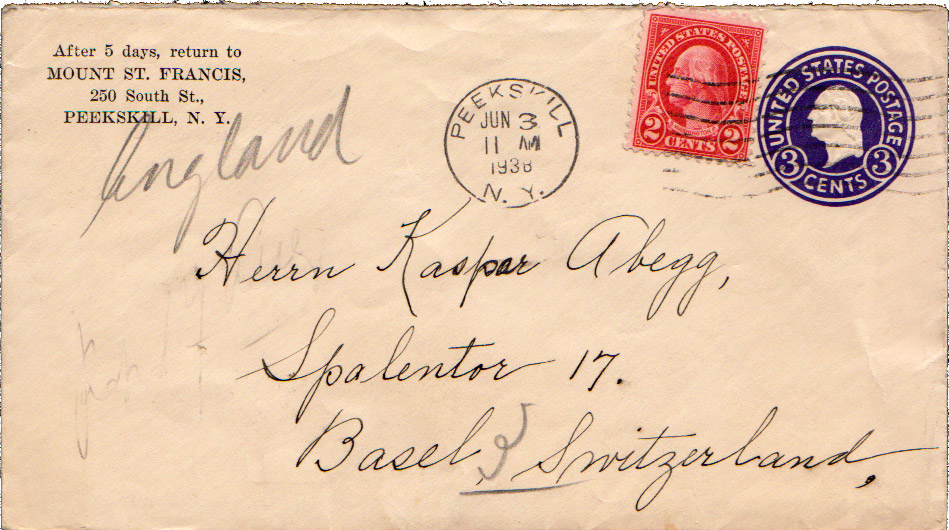 After 5 days, return to
MOUNT ST. FRANCIS,
250 South St.,
PEEKSKILL, N. Y.
England
PEEKSKILL
JUN 3
11 AM
1938
N. Y.
UNITED STATES POSTAGE
2 CENTS 2
UNITED STATES POSTAGE
3 CENTS 3
Herrn Kaspar Abegg,
Spalentor 17.
Basel, Switzerland,